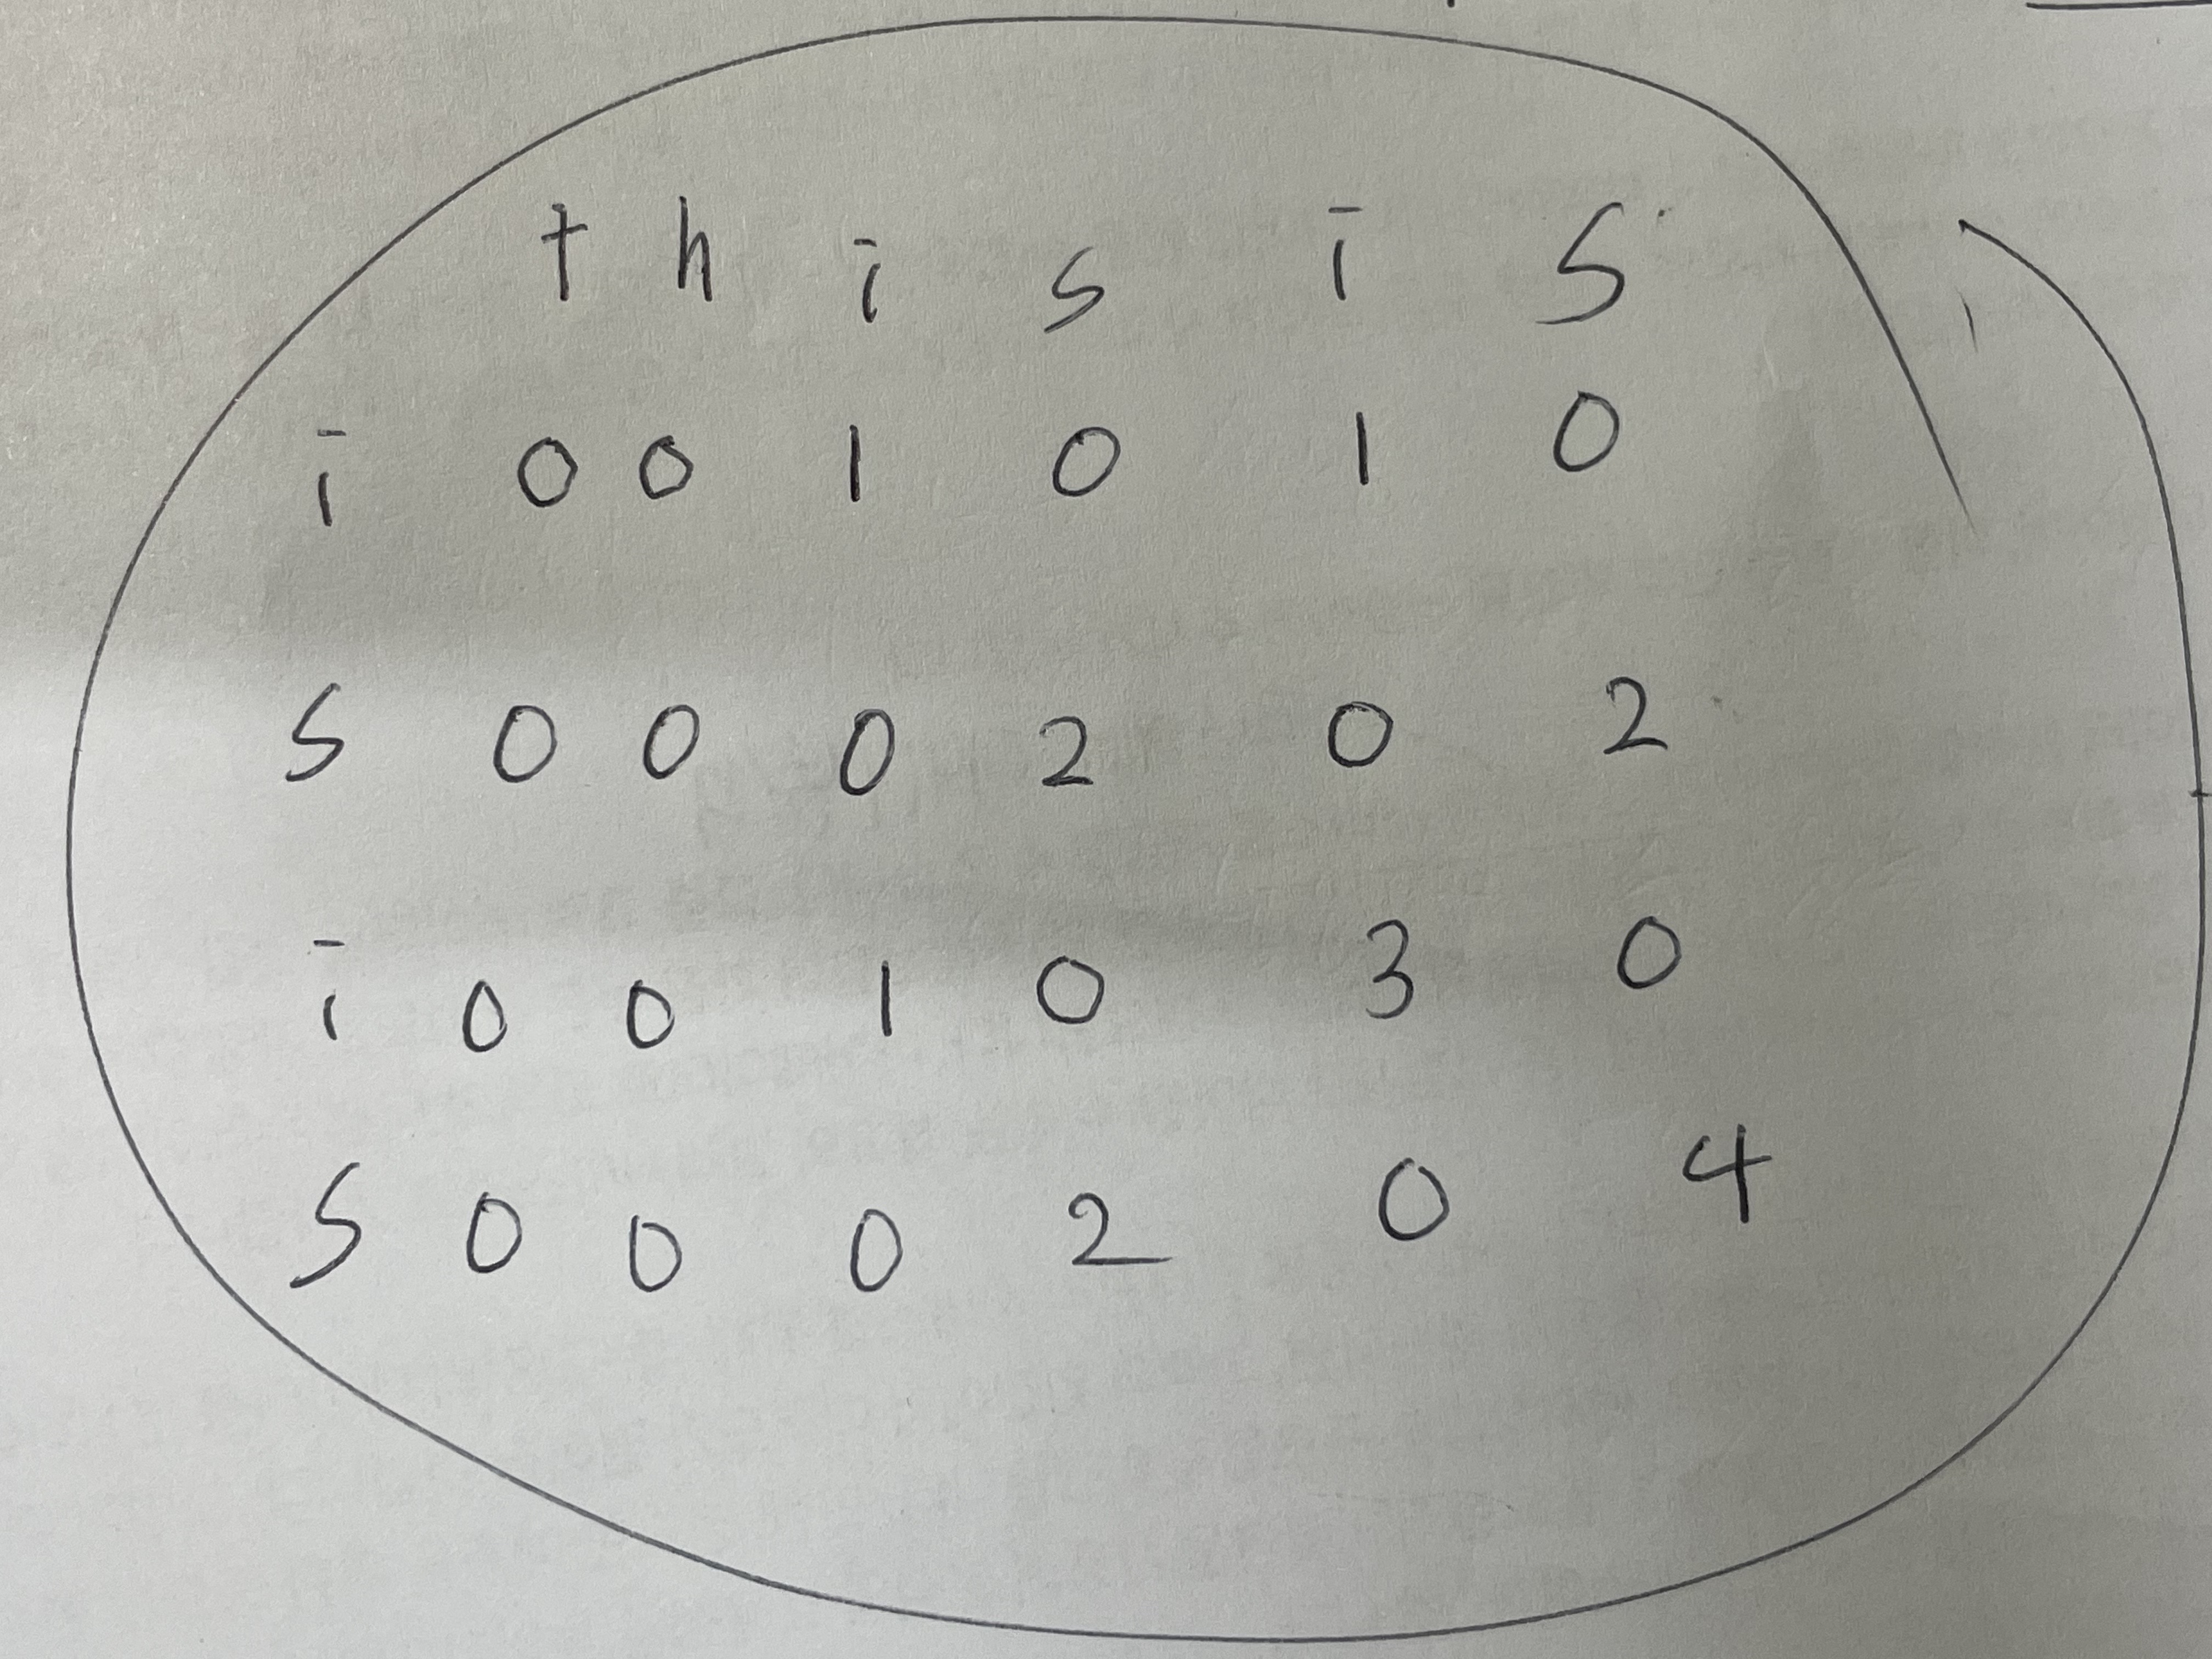 t h i s i s
i 0 0 1 0 1 0
s 0 0 0 2 0 2
i 0 0 1 0 3 0
s 0 0 0 2 0 4